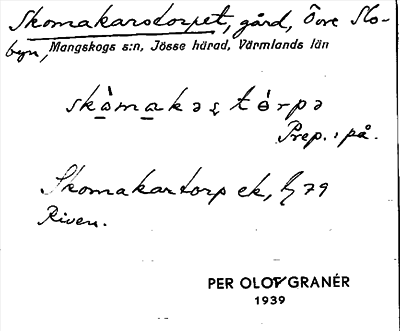 Skomakarstorpet, gård, Övre Slo-
byn, Mangskogs s:n, Jösse härad, Värmlands län
skòmakəʂtórpə
Prep.: på.
Skomakartorp ek, 79
Riven.
PER OLOF GRANÉR
1939